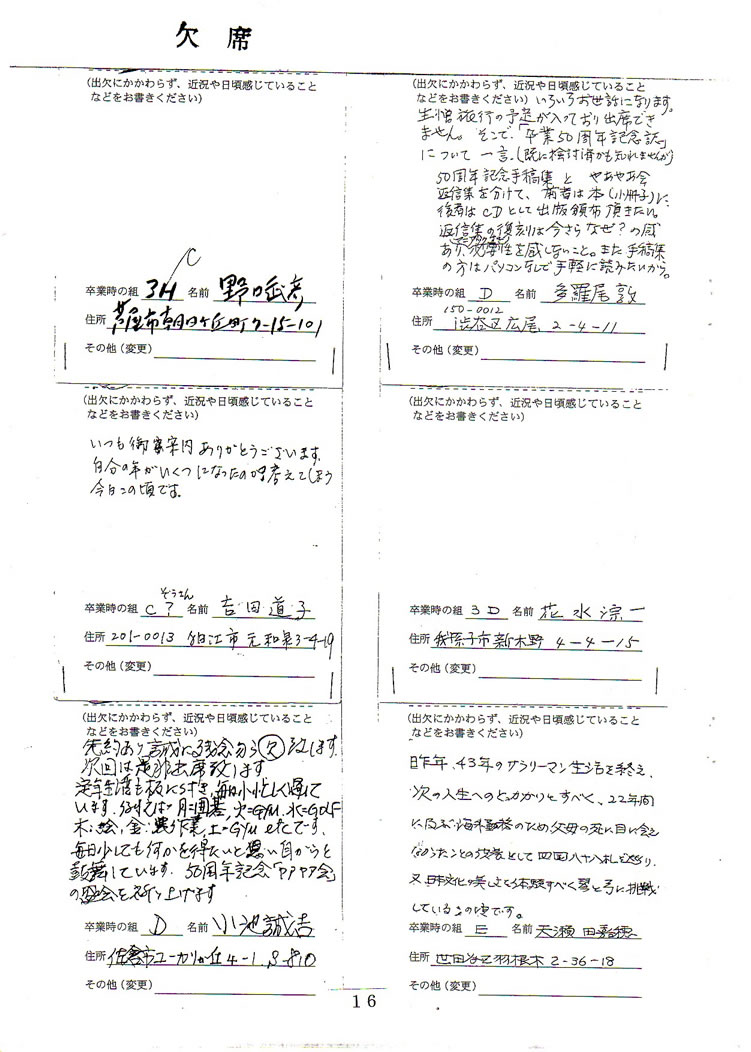 欠席
(出欠にかかわらず、近況や日頃感じていること
などをお書きください)
C
卒業時の組 3H 名前 野口武彦
住所 芦屋市朝日ケ丘町7-15-101
その他(変更)
(出欠にかかわらず、近況や日頃感じていること
などをお書きください) いろいろお世話になります。
生憎旅行の予定が入っており出席でき
ません。そこで、「卒業50周年記念誌」
について一言。(既に検討済かも知れませんが)
50周年記念手稿集と やあやあ会
返信集を分けて、前者は本(小冊子)に、
後者はCDとして出版頒布頂きたい。
返信集の復刻は今さらなぜ?の感
あり、必要性を感じないこと。また手稿集
の方はパソコンなしで手軽に読みたいから。
卒業時の組 D 名前 多羅尾敦
150-0012
住所 渋谷区広尾 2-4-11
その他(変更)
(出欠にかかわらず、近況や日頃感じていること
などをお書きください)
いつも御案内ありがとうございます。
自分の年がいくつになったのか考えてしまう
今日この頃です。
卒業時の組 C? 名前 吉田道子
住所 201-0013 狛江市元和泉3-4-19
その他(変更)
(出欠にかかわらず、近況や日頃感じていること
などをお書きください)
卒業時の組 3D 名前 花水淙一
住所 我孫子市新木野 4-4-15
その他(変更)
(出欠にかかわらず、近況や日頃感じていること
などをお書きください)
先約あり誠に残念乍ら欠致します
次回は是非出席致します
定年生活も板につき、毎日小忙しく過して
います。例えば 月=囲碁、火=GYM、水=GOLF
木=絵、金=作業、土=GYM etcです。
毎日少しでも何かを得たいと思い自からを
鼓舞しています。50周年記念「PPPP会」
の盛会を祈り上げます
卒業時の組 D 名前 小池誠吉
住所 佐倉市ユーカリが丘4-1
その他(変更)
(出欠にかかわらず、近況や日頃感じていること
などをお書きください)
昨年、43年のサラリーマン生活を終え、
次の人生へのとっかかりにすべく、22年間
に及ぶ海外勤務のため父母の死に目に会え
なかったことの供養として四国八十八札所巡り、
又、日本文化の美しさを体験すべく習と弓に挑戦
しているこの頃です。
卒業時の組 E 名前 天瀬田
住所 世田谷区羽根木 2-36-18
その他(変更)
16